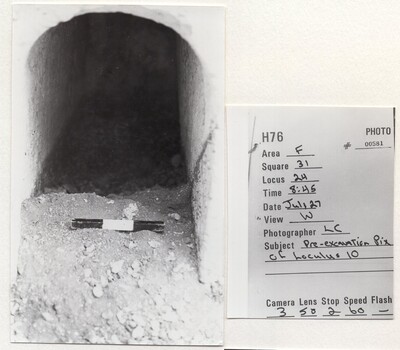 H76 PHOTO
# 00581
Area F
Square 31
Locus 24
Time 8:45
Date July 27
View W
Photographer LC
Subject Pre-excavation Pix
of Loculus 10
Camera Lens Stop Speed Flash
3 50 2 60 —